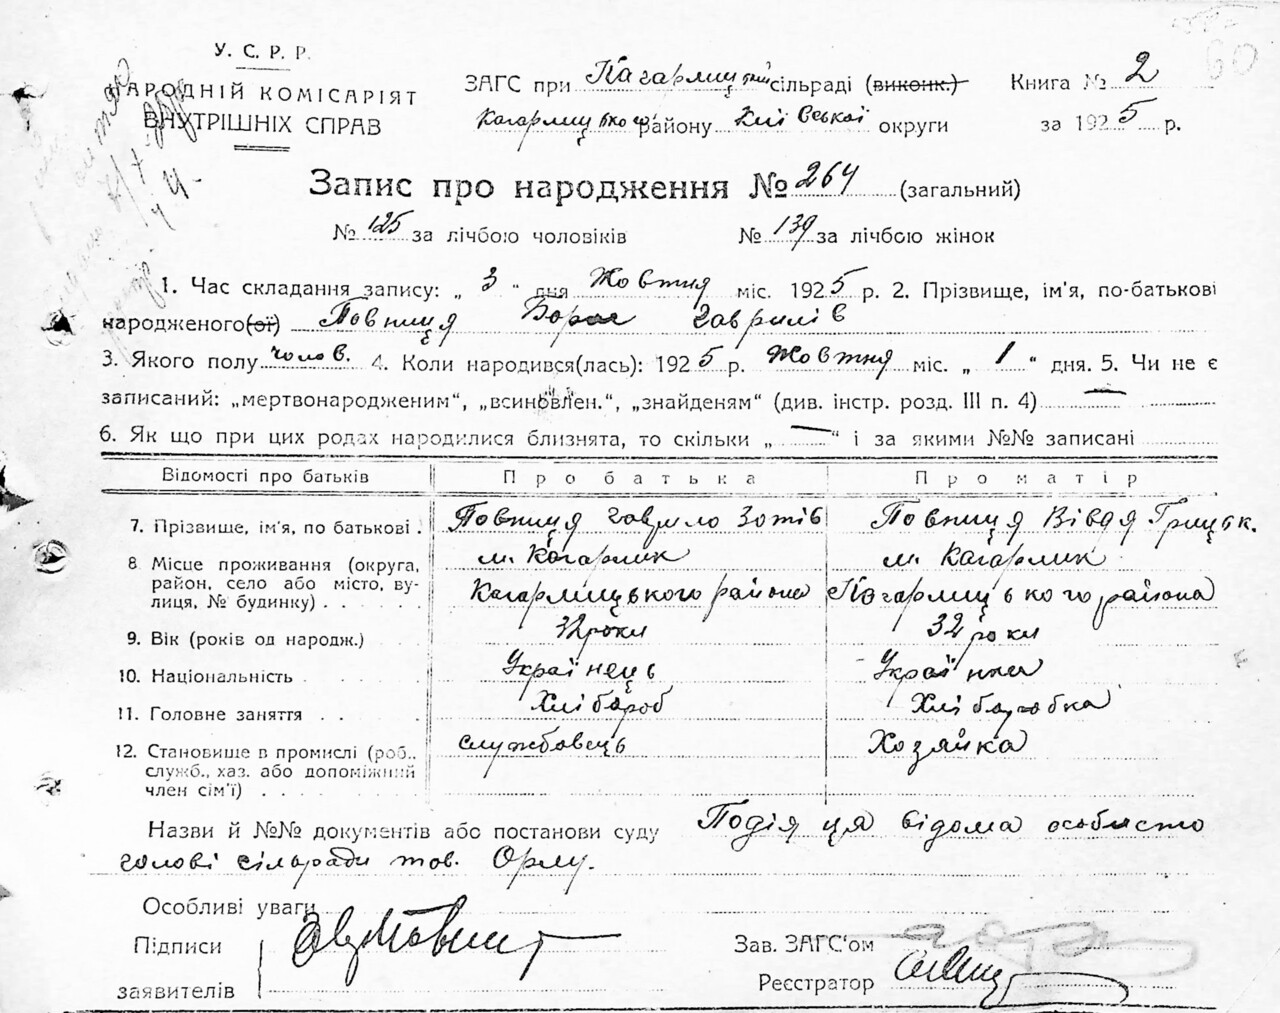 У. С. Р. Р.
НАРОДНІЙ КОМІСАРІЯТ
ВНУТРІШНІХ СПРАВ
ЗАГС при Кагарлицькій сільраді (виконк.) Книга № 2
Кагарлицького району Київської округи за 1925 р.
Запис про народження № 264 (загальний)
№ 125 за лічбою чоловіків № 139 за лічбою жінок
1. Час складання запису: „ 3 “ дня Жовтня міс. 1925 р. 2. Прізвище, ім'я, по-батькові
народженого(ої) Повпиця Борис Гаврилів
3. Якого полу чолов. 4. Коли народився(лась): 1925 р. Жовтня міс. „ 1 “ дня. 5. Чи не є
записаний: „мертвонародженим“, „всиновлен.“, „знайденям“ (див. інстр. розд. III п. 4) —
6. Як що при цих родах народилися близнята, то скільки „ — “ і за якими №№ записані
Відомості про батьків Про батька Про матір
7. Прізвище, ім'я, по батькові . Повпиця Гаврило Зотів Повпиця Вівдя Грицьк.
8 Місце проживання (округа, м. Кагарлик м. Кагарлик
район, село або місто, ву-
лиця, № будинку) . . . . . Кагарлицького района Кагарлицького района
9. Вік (років од народж.) 32 роки 32 роки
10. Національність . . . . Українець Українка
11. Головне заняття . . . Хлібороб Хліборобка
12. Становище в промислі (роб., службовець Хозяйка
служб., хаз. або допоміжний
член сім'ї) . . . . . .
Назви й №№ документів або постанови суду Подія ця відома особисто
голові сільради тов. Орлу.
Особливі уваги
Підписи
заявителів
Зав. ЗАГС'ом
Реєстратор